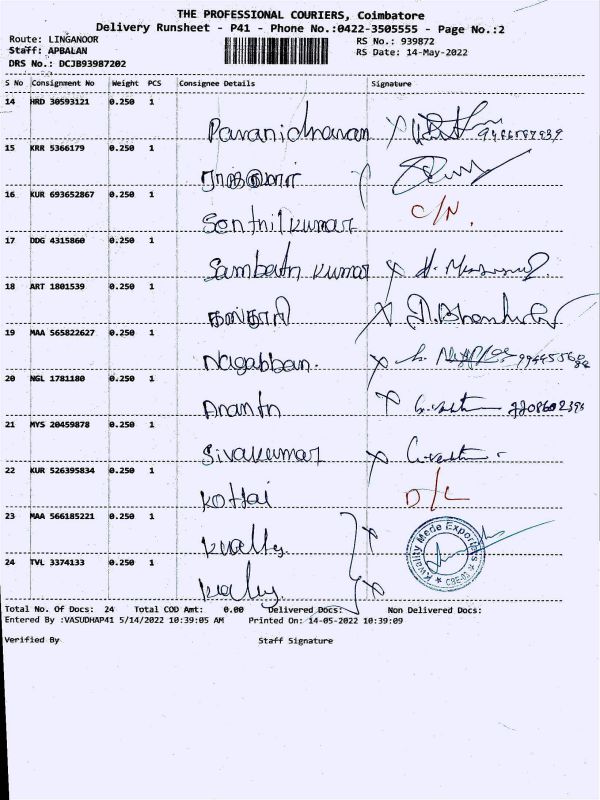 THE PROFESSIONAL COURIERS, Coimbatore
Delivery Runsheet - P41 - Phone No.:0422-3505555 - Page No.:2
Route: LINGANOOR RS No.: 939872
Staff: APBALAN RS Date: 14-May-2022
DRS No.: DCJB93987202
S No Consignment No Weight PCS Consignee Details Signature
14 HRD 30593121 0.250 1
Pavanidharan X
15 KRR 5366179 0.250 1
16 KUR 693652867 0.250 1 C/N.
Senthil kumar
17 DDG 4315860 0.250 1
Sambath kumar X
18 ART 1801539 0.250 1
X
19 MAA 565822627 0.250 1
Nagabban. X
20 NGL 1781180 0.250 1
Ananth X
21 MYS 20459878 0.250 1
Sivakumar X
22 KUR 526395834 0.250 1
Kottai D/L
23 MAA 566185221 0.250 1 X
Kwality Kwality Mede Exporters
24 TVL 3374133 0.250 1 X CBE-03
Kwality
Total No. Of Docs: 24 Total COD Amt: 0.00 Delivered Docs: Non Delivered Docs:
Entered By :VASUDHAP41 5/14/2022 10:39:05 AM Printed On: 14-05-2022 10:39:09
Verified By Staff Signature